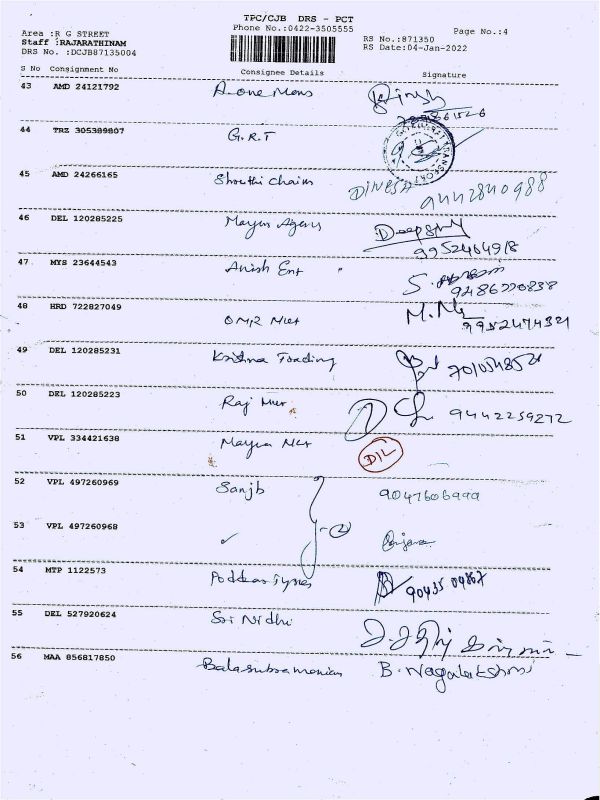 TPC/CJB DRS - PCT
Phone No.:0422-3505555
Page No.:4
Area :R G STREET
Staff :RAJARATHINAM
DRS No. :DCJB87135004
RS No.:871350
RS Date:04-Jan-2022
S No Consignment No Consignee Details Signature
43 AMD 24121792 A-one Mens
44 TRZ 305389807 G.R.T
45 AMD 24266165 Shruthi Chains DINESH 9442840988
46 DEL 120285225 Mayur Agency Deepak 9952464918
47 MYS 23644543 Anish Ent 9486220838
48 HRD 722827049 OMR Mkt M.M 9952474321
49 DEL 120285231 Krishna Trading
50 DEL 120285223 Raj 9442259272
51 VPL 334421638 Mayura Mkt D/L
52 VPL 497260969 Sanjb 9047606999
53 VPL 497260968 ✓ 2
54 MTP 1122573 Poddar Tyres 9043504867
55 DEL 527920624 Sri Nidhi
56 MAA 856817850 Balasubramanian B. Nagalakshmi